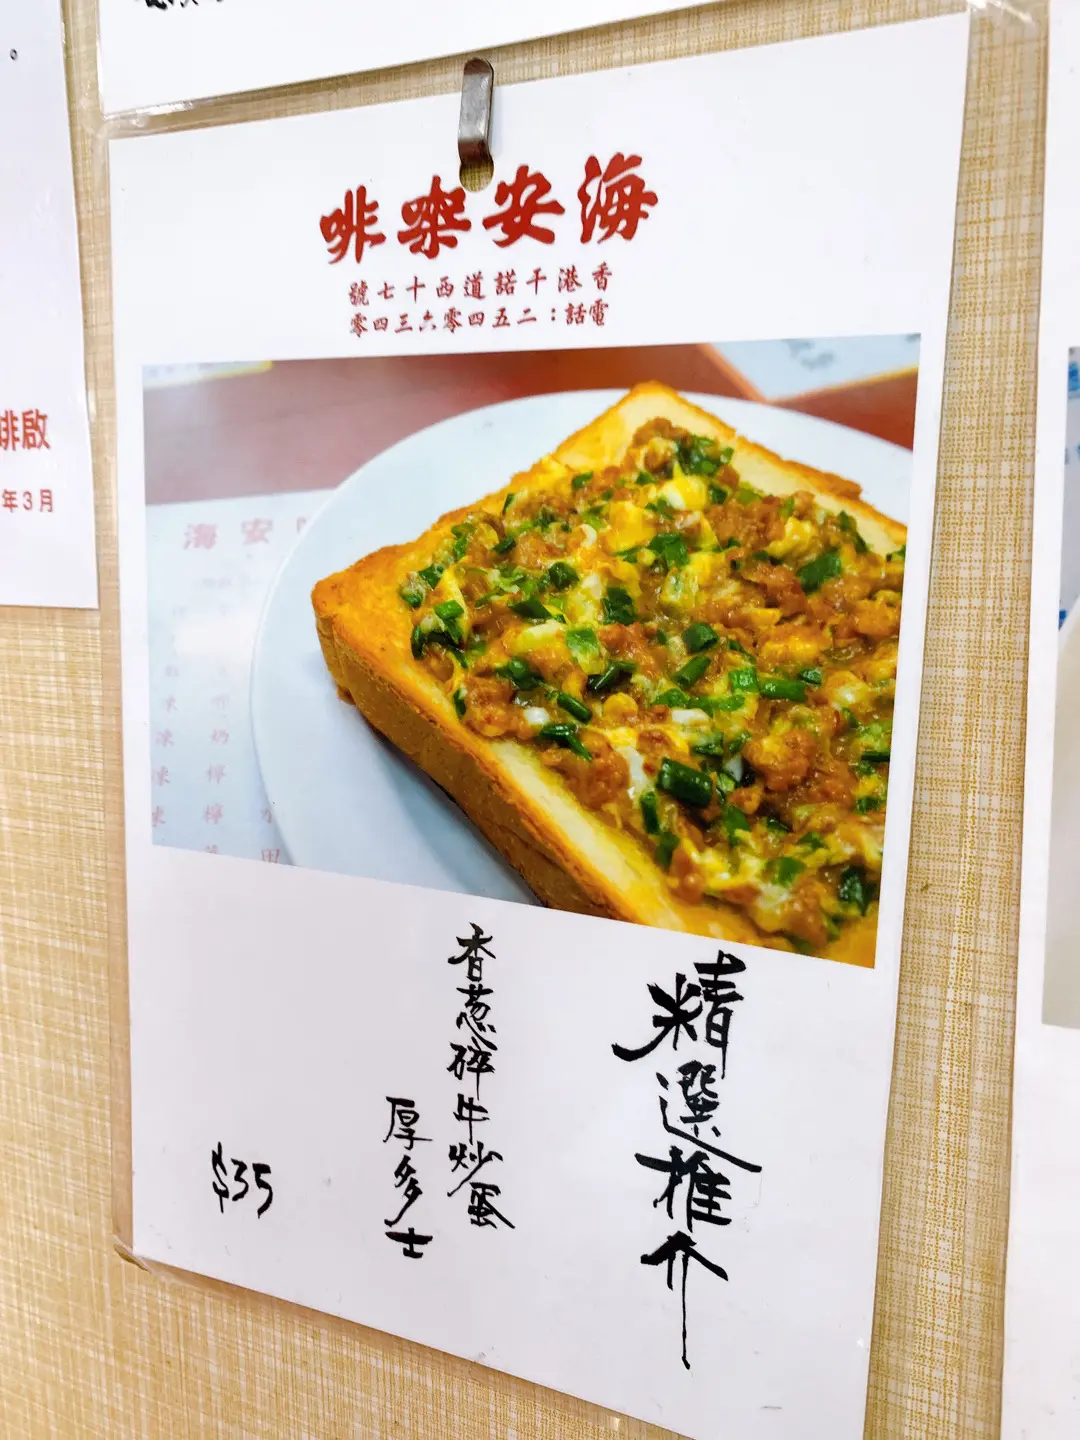 海安㗎啡
香港干諾道西十七號
電話：二五四零六三四零
精選推介
香葱碎牛炒蛋
厚多士
$35
啡啟
年3月
海安
凍
凍 奶
凍 檸
檸